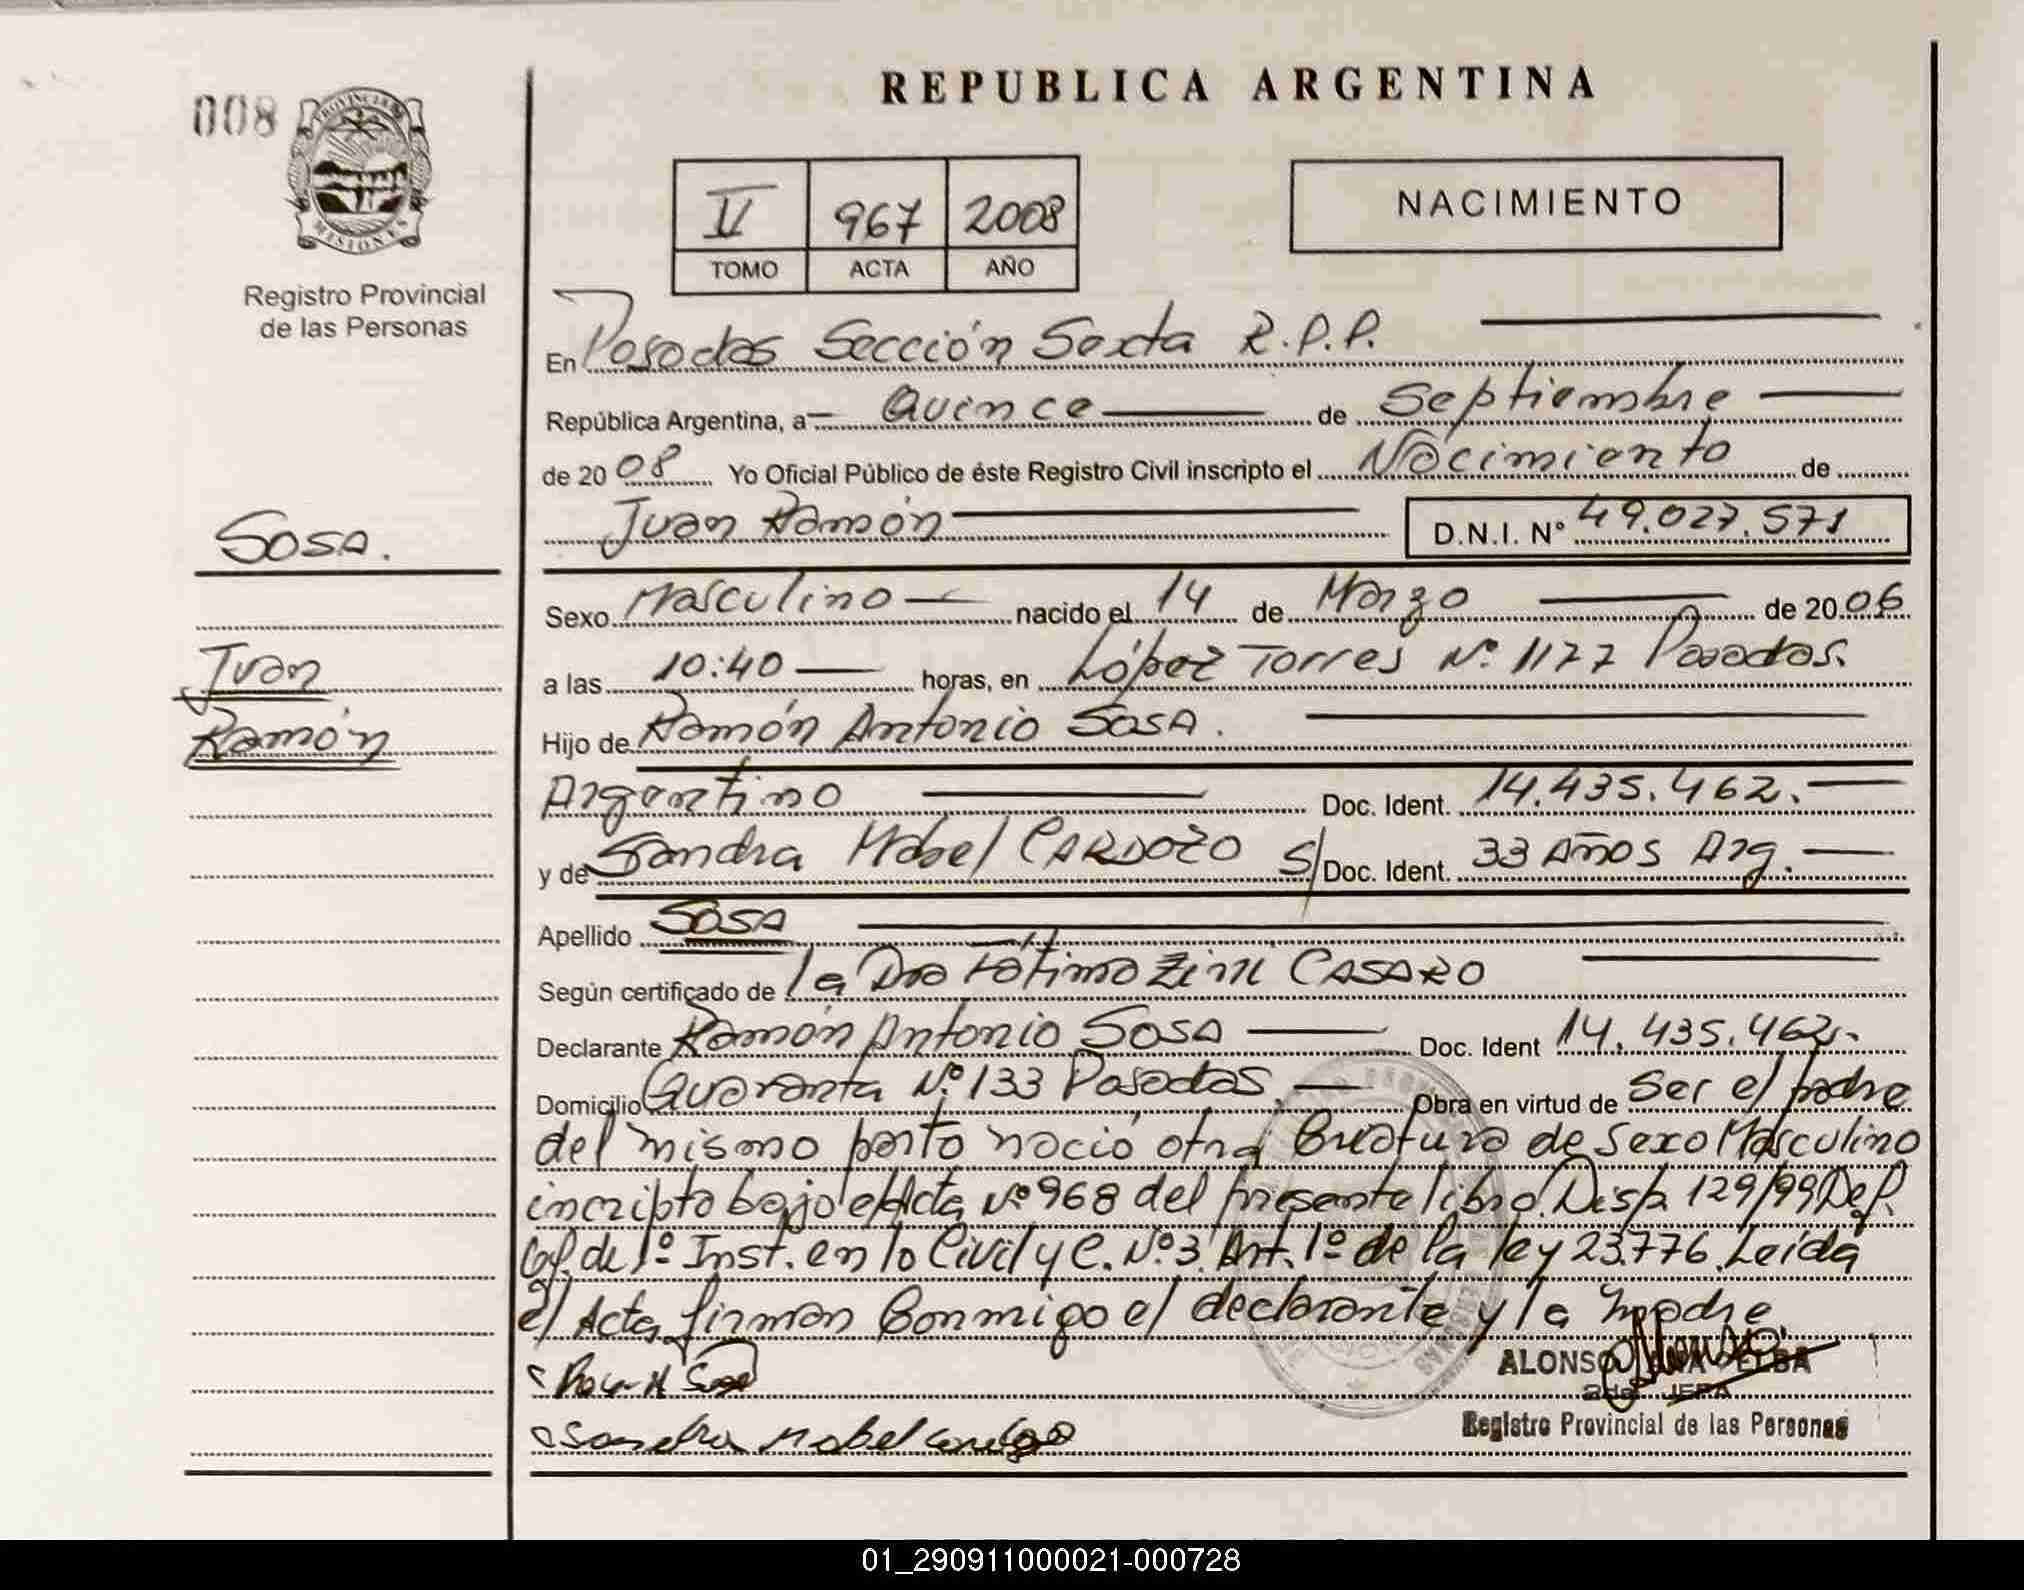 008
PROVINCIA DE
MISIONES
Registro Provincial
de las Personas
SOSA.
Juan
Ramón
REPUBLICA ARGENTINA
V 967 2008
TOMO ACTA AÑO
NACIMIENTO
En Posadas Sección Sexta R.P.P.
República Argentina, a Quince de Septiembre
de 20 08 Yo Oficial Público de éste Registro Civil inscripto el Nacimiento de
Juan Ramón D.N.I. Nº 49.027.571
Sexo Masculino nacido el 14 de Marzo de 20 06
a las 10:40 horas, en López Torres Nº 1177 Posadas.
Hijo de Ramón Antonio SOSA.
Argentino Doc. Ident. 14.435.462.
y de Sandra Mabel CARDOZO S/ Doc. Ident. 33 AÑOS Arg.
Apellido SOSA
Según certificado de la Dra Fátima CASARO
Declarante Ramón Antonio SOSA Doc. Ident 14.435.462.
Domicilio Quaranta Nº 133 Posadas. Obra en virtud de Ser el padre
del mismo parto nació otra Criatura de Sexo Masculino
incripto bajo el Acta Nº 968 del presente libro. Disp. 129/99 Def.
Of. de 1º Inst. en lo Civil y C. Nº 3. Art. 1º de la ley 23.776. Leída
el Acta, firman Conmigo el declarante y la madre
Sandra Mabel
ALONSO ELBA
2da. JEFA
Registro Provincial de las Personas
01_290911000021-000728